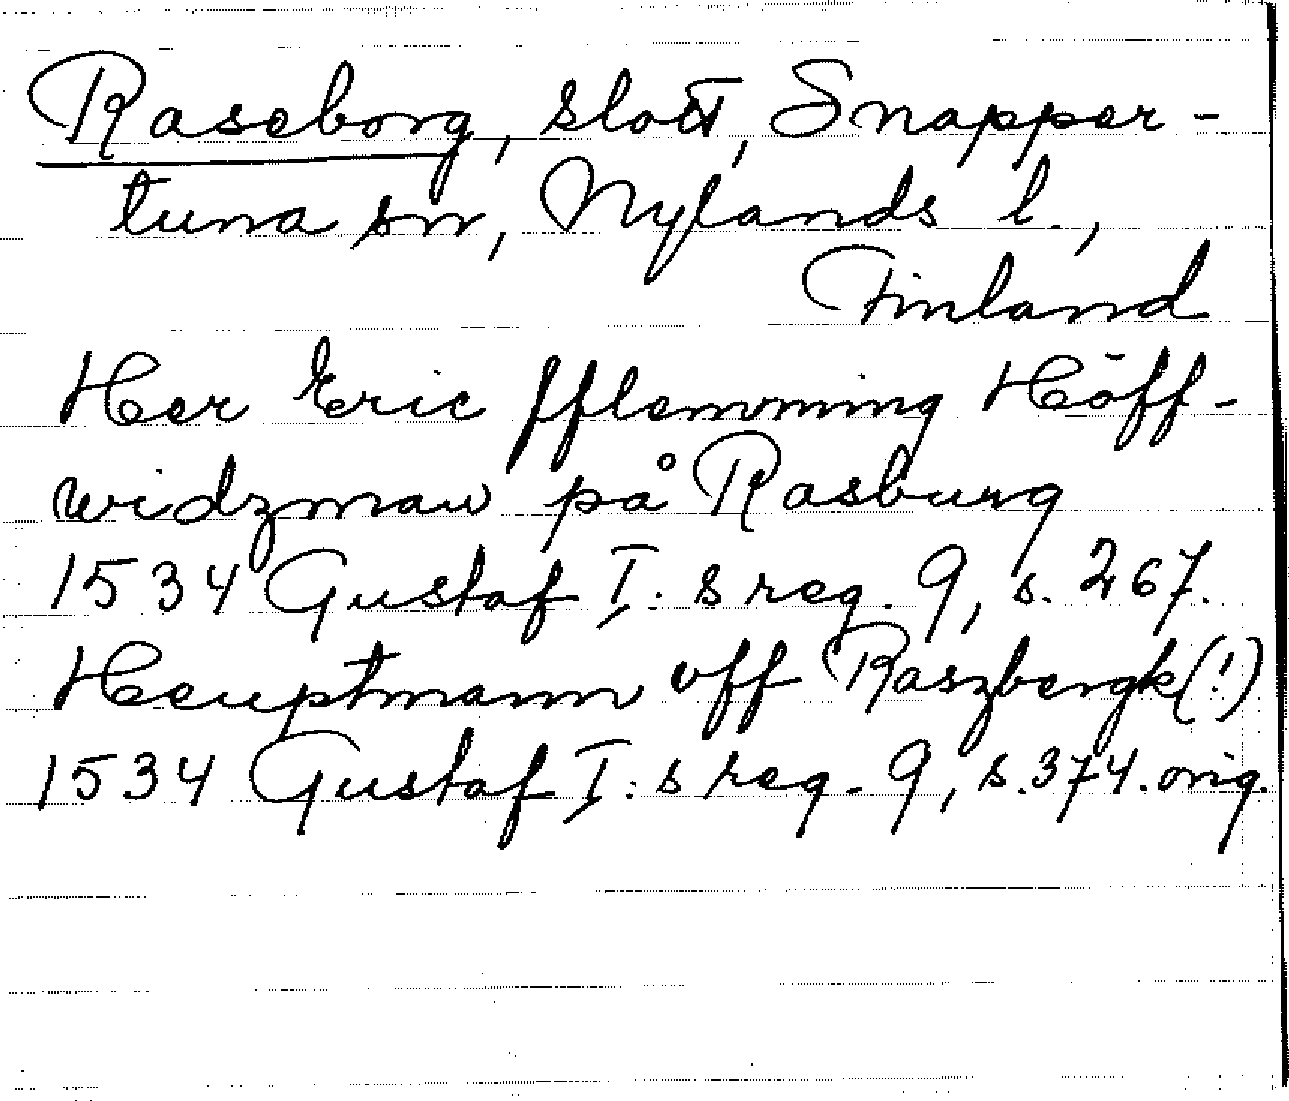 Raseborg, slott, Snapper-
tuna sn, Nylands l.,
Finland
Her Eric fflemming Höff-
widzman på Rasburg
1534 Gustaf I:s reg. 9, s. 267.
Heuptmann vff Raszbergk(!)
1534 Gustaf I:s reg. 9, s. 374. orig.